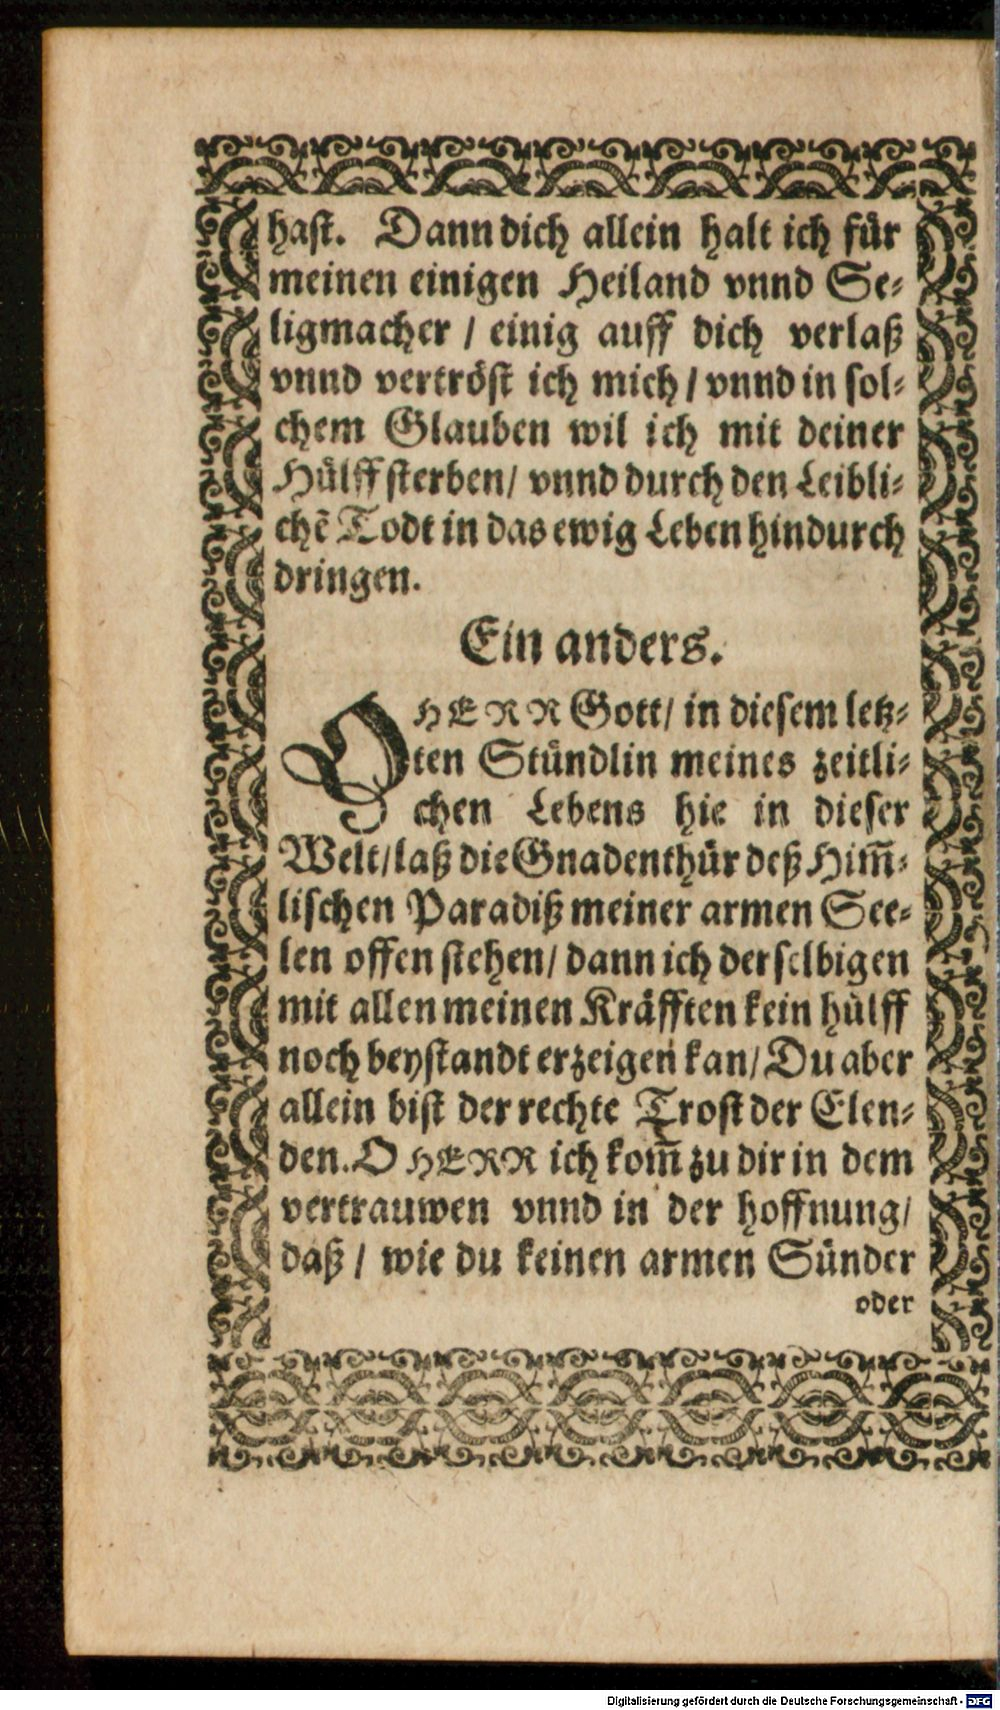 hast. Dann dich allein halt ich für
meinen einigen Heiland vnnd Se-
ligmacher / einig auff dich verlaß
vnnd vertröst ich mich / vnnd in sol-
chem Glauben wil ich mit deiner
Hülff sterben / vnnd durch den Leibli-
chẽ Todt in das ewig Leben hindurch
dringen.
Ein anders.
O HERR Gott / in diesem letz-
ten Stündlin meines zeitli-
chen Lebens hie in dieser
Welt / laß die Gnadenthür deß Him̃-
lischen Paradiß meiner armen See-
len offen stehen / dann ich derselbigen
mit allen meinen Kräfften kein hülff
noch beystandt erzeigen kan / Du aber
allein bist der rechte Trost der Elen-
den. O HERR ich kom̃ zu dir in dem
vertrauwen vnnd in der hoffnung /
daß / wie du keinen armen Sünder
oder
Digitalisierung gefördert durch die Deutsche Forschungsgemeinschaft - DFG